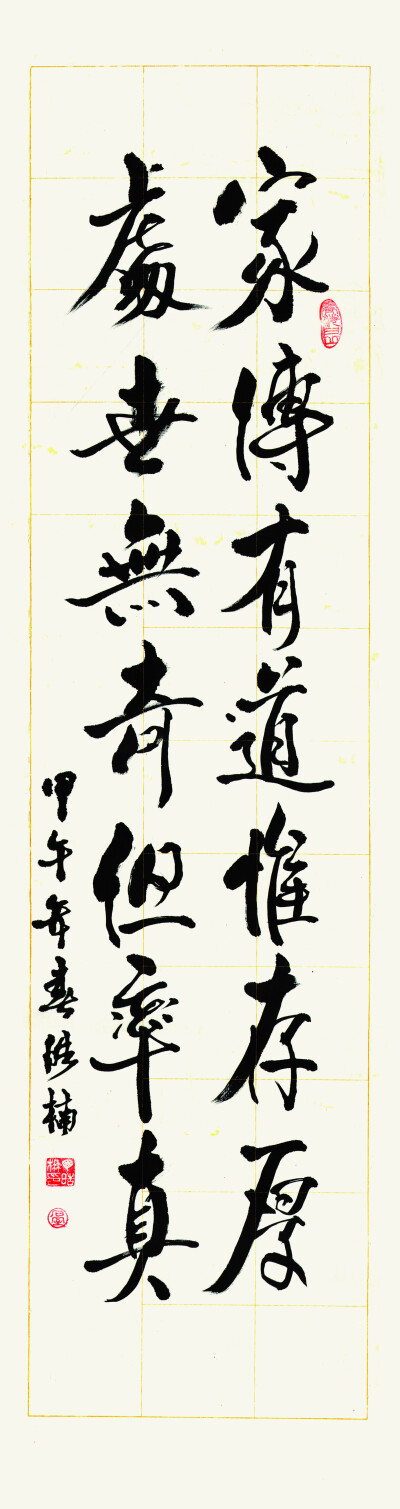 家傳有道惟存厚
處世無奇但率真
甲午年春